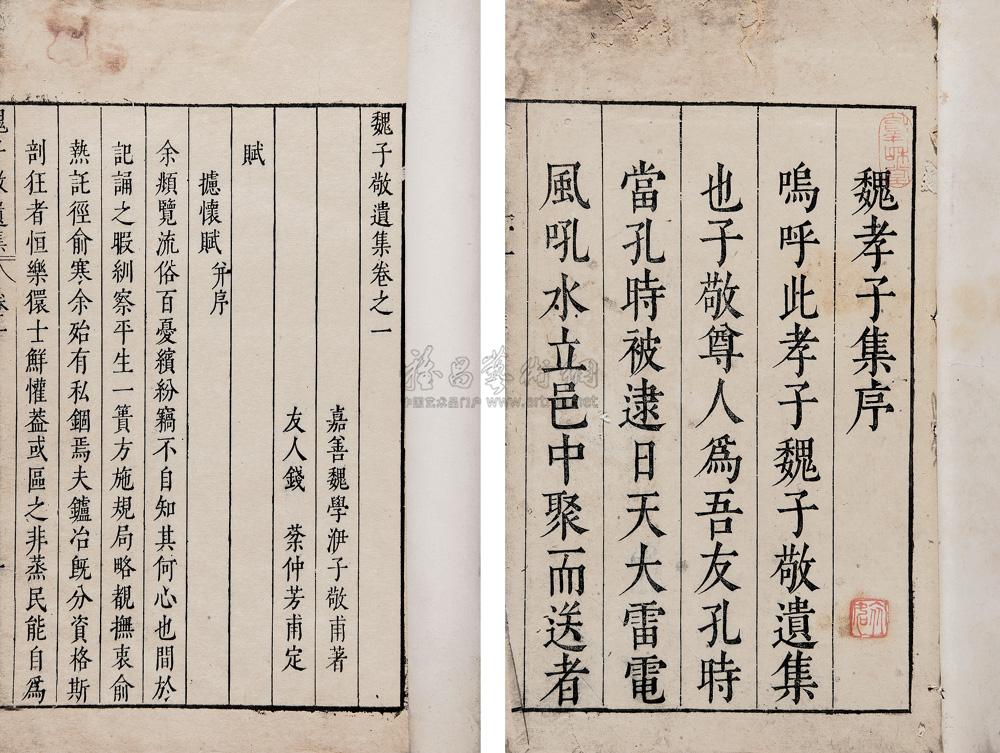 魏孝子集序
嗚呼此孝子魏子敬遺集
也子敬尊人為吾友孔時
當孔時被逮日天大雷電
風吼水立邑中聚而送者
魏子敬遺集卷之一
嘉善魏學洢子敬甫著
友人錢棻仲芳甫定
賦
攄懷賦并序
余頫覽流俗百憂繽紛竊不自知其何心也間於
記誦之暇紃察平生一簣方施規局略覩撫衷俞
熱託徑俞寒余殆有私錮焉夫鑪冶既分資格斯
剖狂者恒樂獧士鮮懽葢或區之非蒸民能自為
雅昌藝術網
中国艺术品门户 www.artron.net